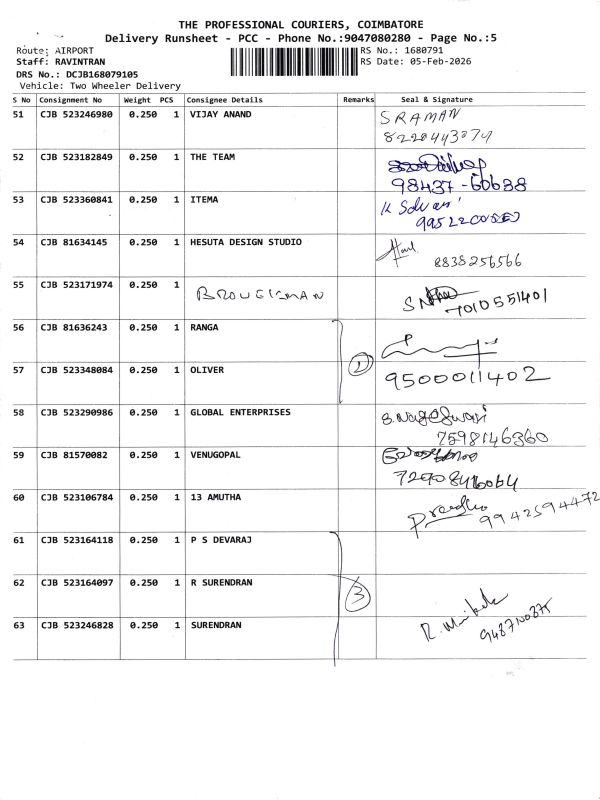 THE PROFESSIONAL COURIERS, COIMBATORE
Delivery Runsheet - PCC - Phone No.:9047080280 - Page No.:5
Route: AIRPORT RS No.: 1680791
Staff: RAVINTRAN RS Date: 05-Feb-2026
DRS No.: DCJB168079105
Vehicle: Two Wheeler Delivery
S No Consignment No Weight PCS Consignee Details Remarks Seal & Signature
51 CJB 523246980 0.250 1 VIJAY ANAND SRAMAN
8220443074
52 CJB 523182849 0.250 1 THE TEAM
98437-60638
53 CJB 523360841 0.250 1 ITEMA K Selvan
54 CJB 81634145 0.250 1 HESUTA DESIGN STUDIO
8838256566
55 CJB 523171974 0.250 1 7010551401
56 CJB 81636243 0.250 1 RANGA
57 CJB 523348084 0.250 1 OLIVER 9500011402
58 CJB 523290986 0.250 1 GLOBAL ENTERPRISES S. Nageswari
7598146360
59 CJB 81570082 0.250 1 VENUGOPAL
60 CJB 523106784 0.250 1 13 AMUTHA 9942594472
61 CJB 523164118 0.250 1 P S DEVARAJ
62 CJB 523164097 0.250 1 R SURENDRAN 3
63 CJB 523246828 0.250 1 SURENDRAN